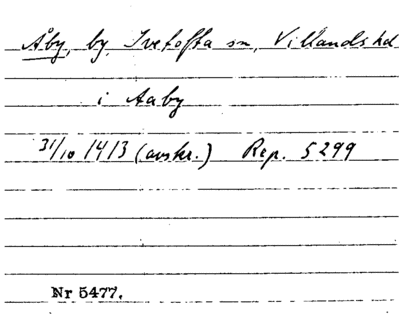 Åby, by, Ivetofta sn, Villands hd
i Aaby
31/10 1413 (avskr.) Rep. 5299
Nr 5477.